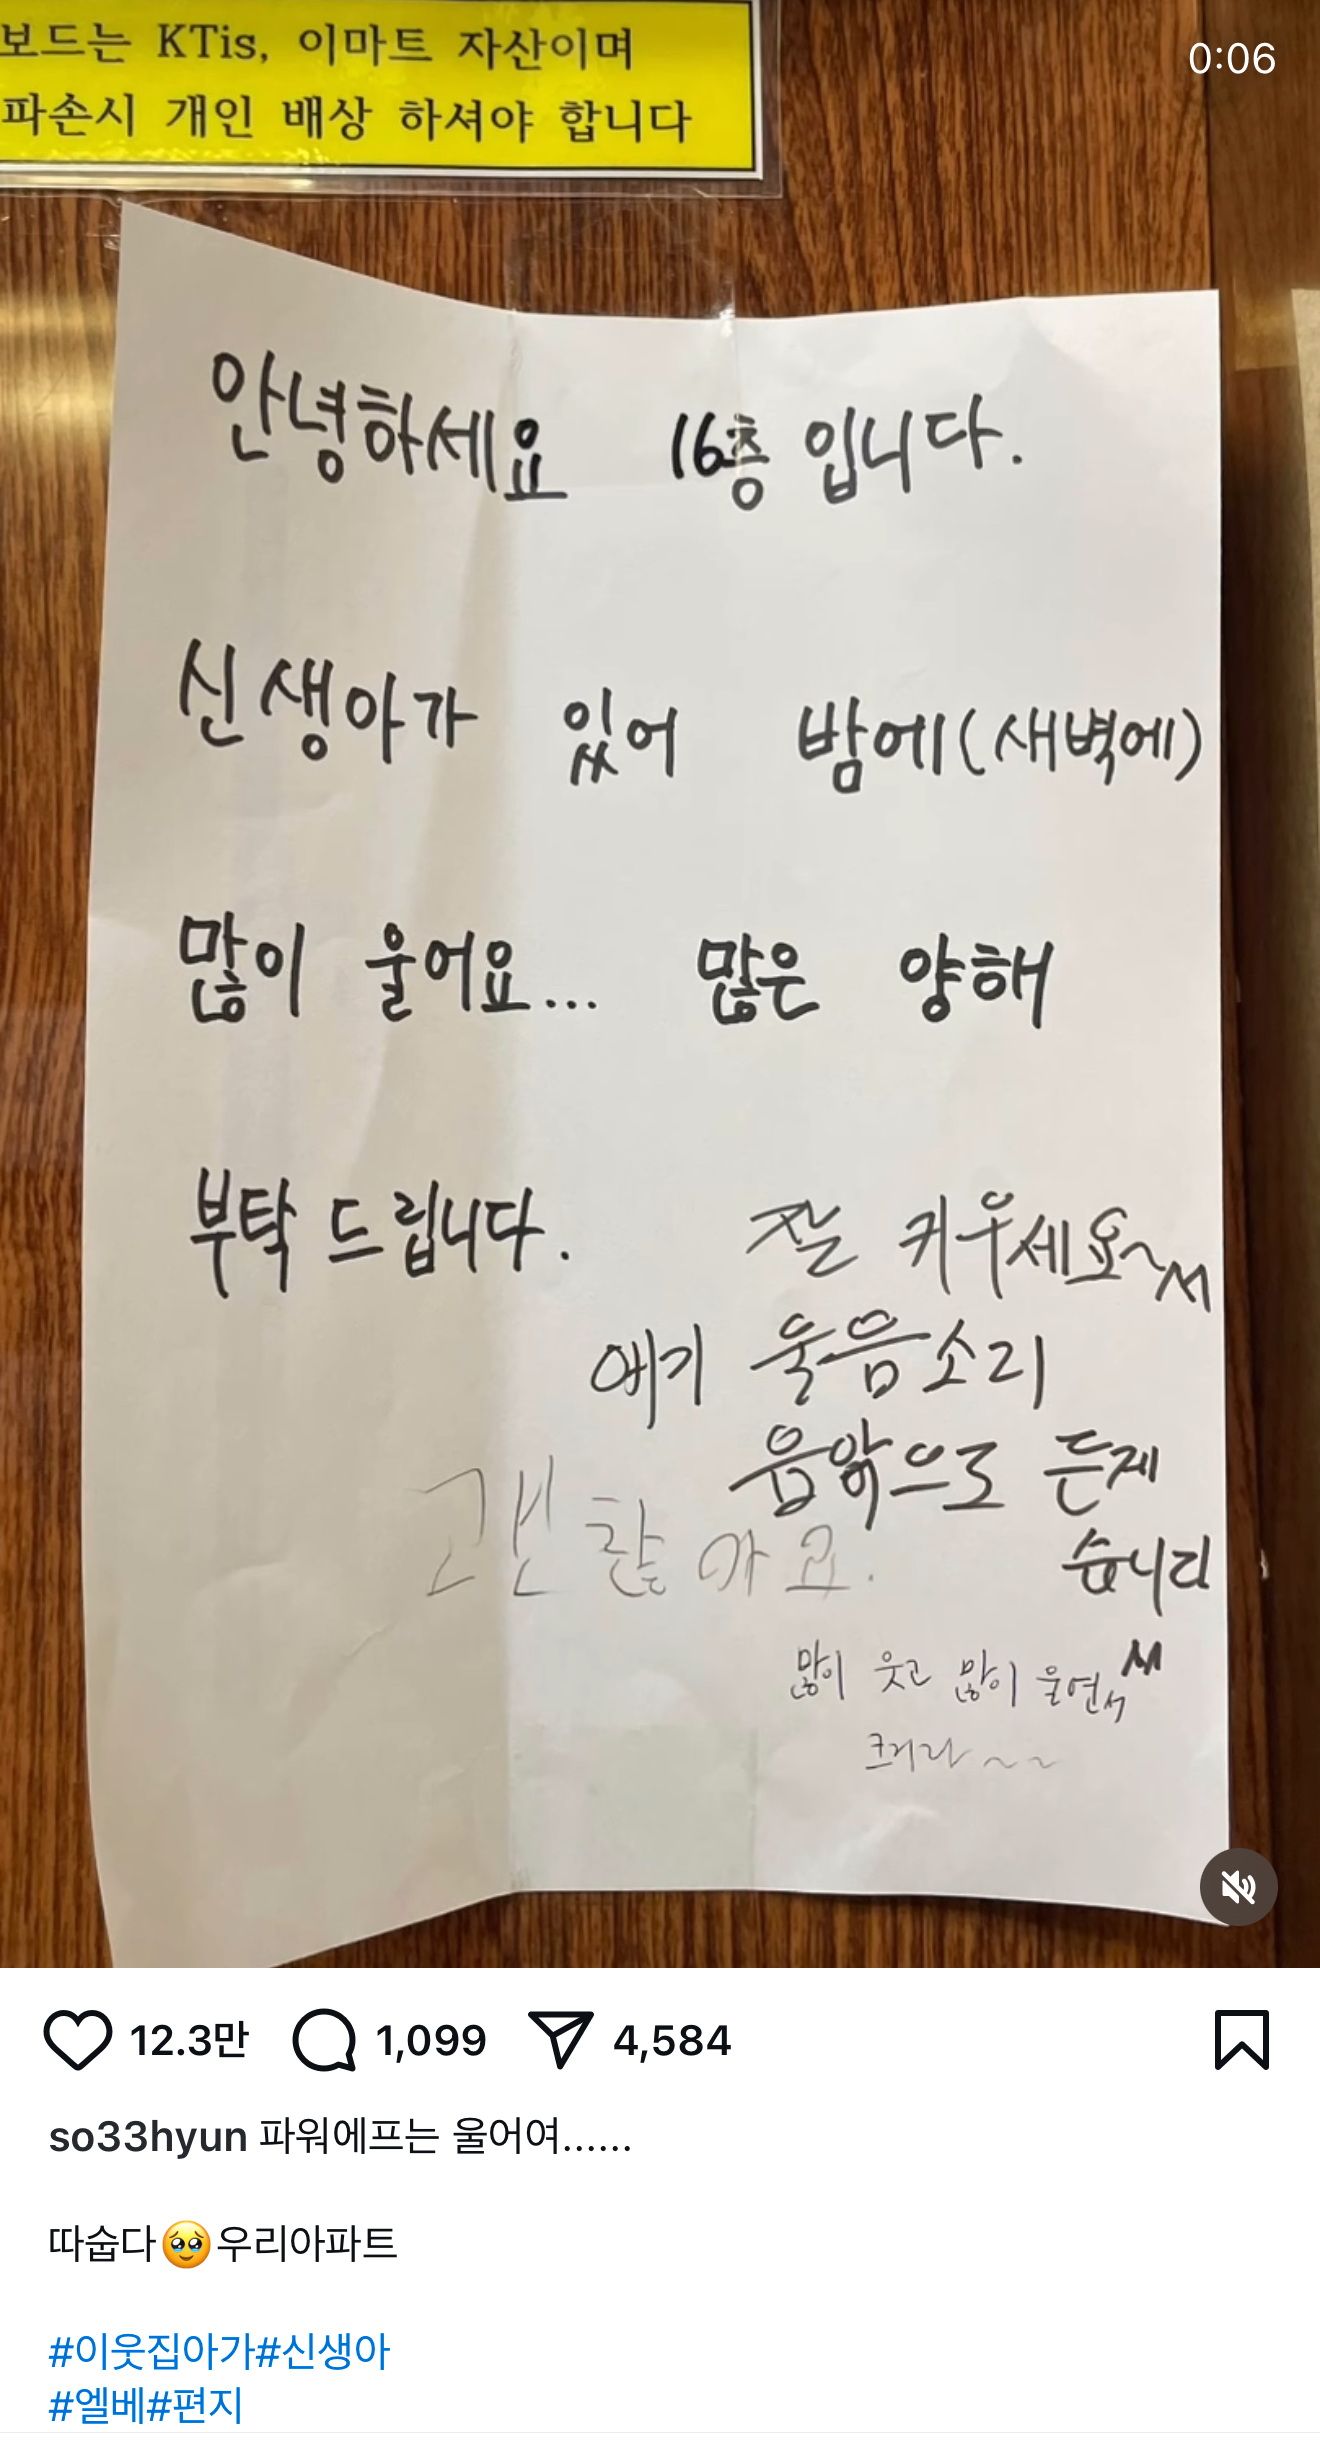 보드는 KTis, 이마트 자산이며
파손시 개인 배상 하셔야 합니다
0:06
안녕하세요 16층 입니다.
신생아가 있어 밤에(새벽에)
많이 울어요... 많은 양해
부탁 드립니다.
잘 키우세요~
애기 울음소리
음악으로 듣게
습니다
괜찮아요.
많이 웃고 많이 울면서
크거라~~
12.3만 1,099 4,584
so33hyun 파워에프는 울어여......
따숩다🥹우리아파트
#이웃집아가#신생아
#엘베#편지